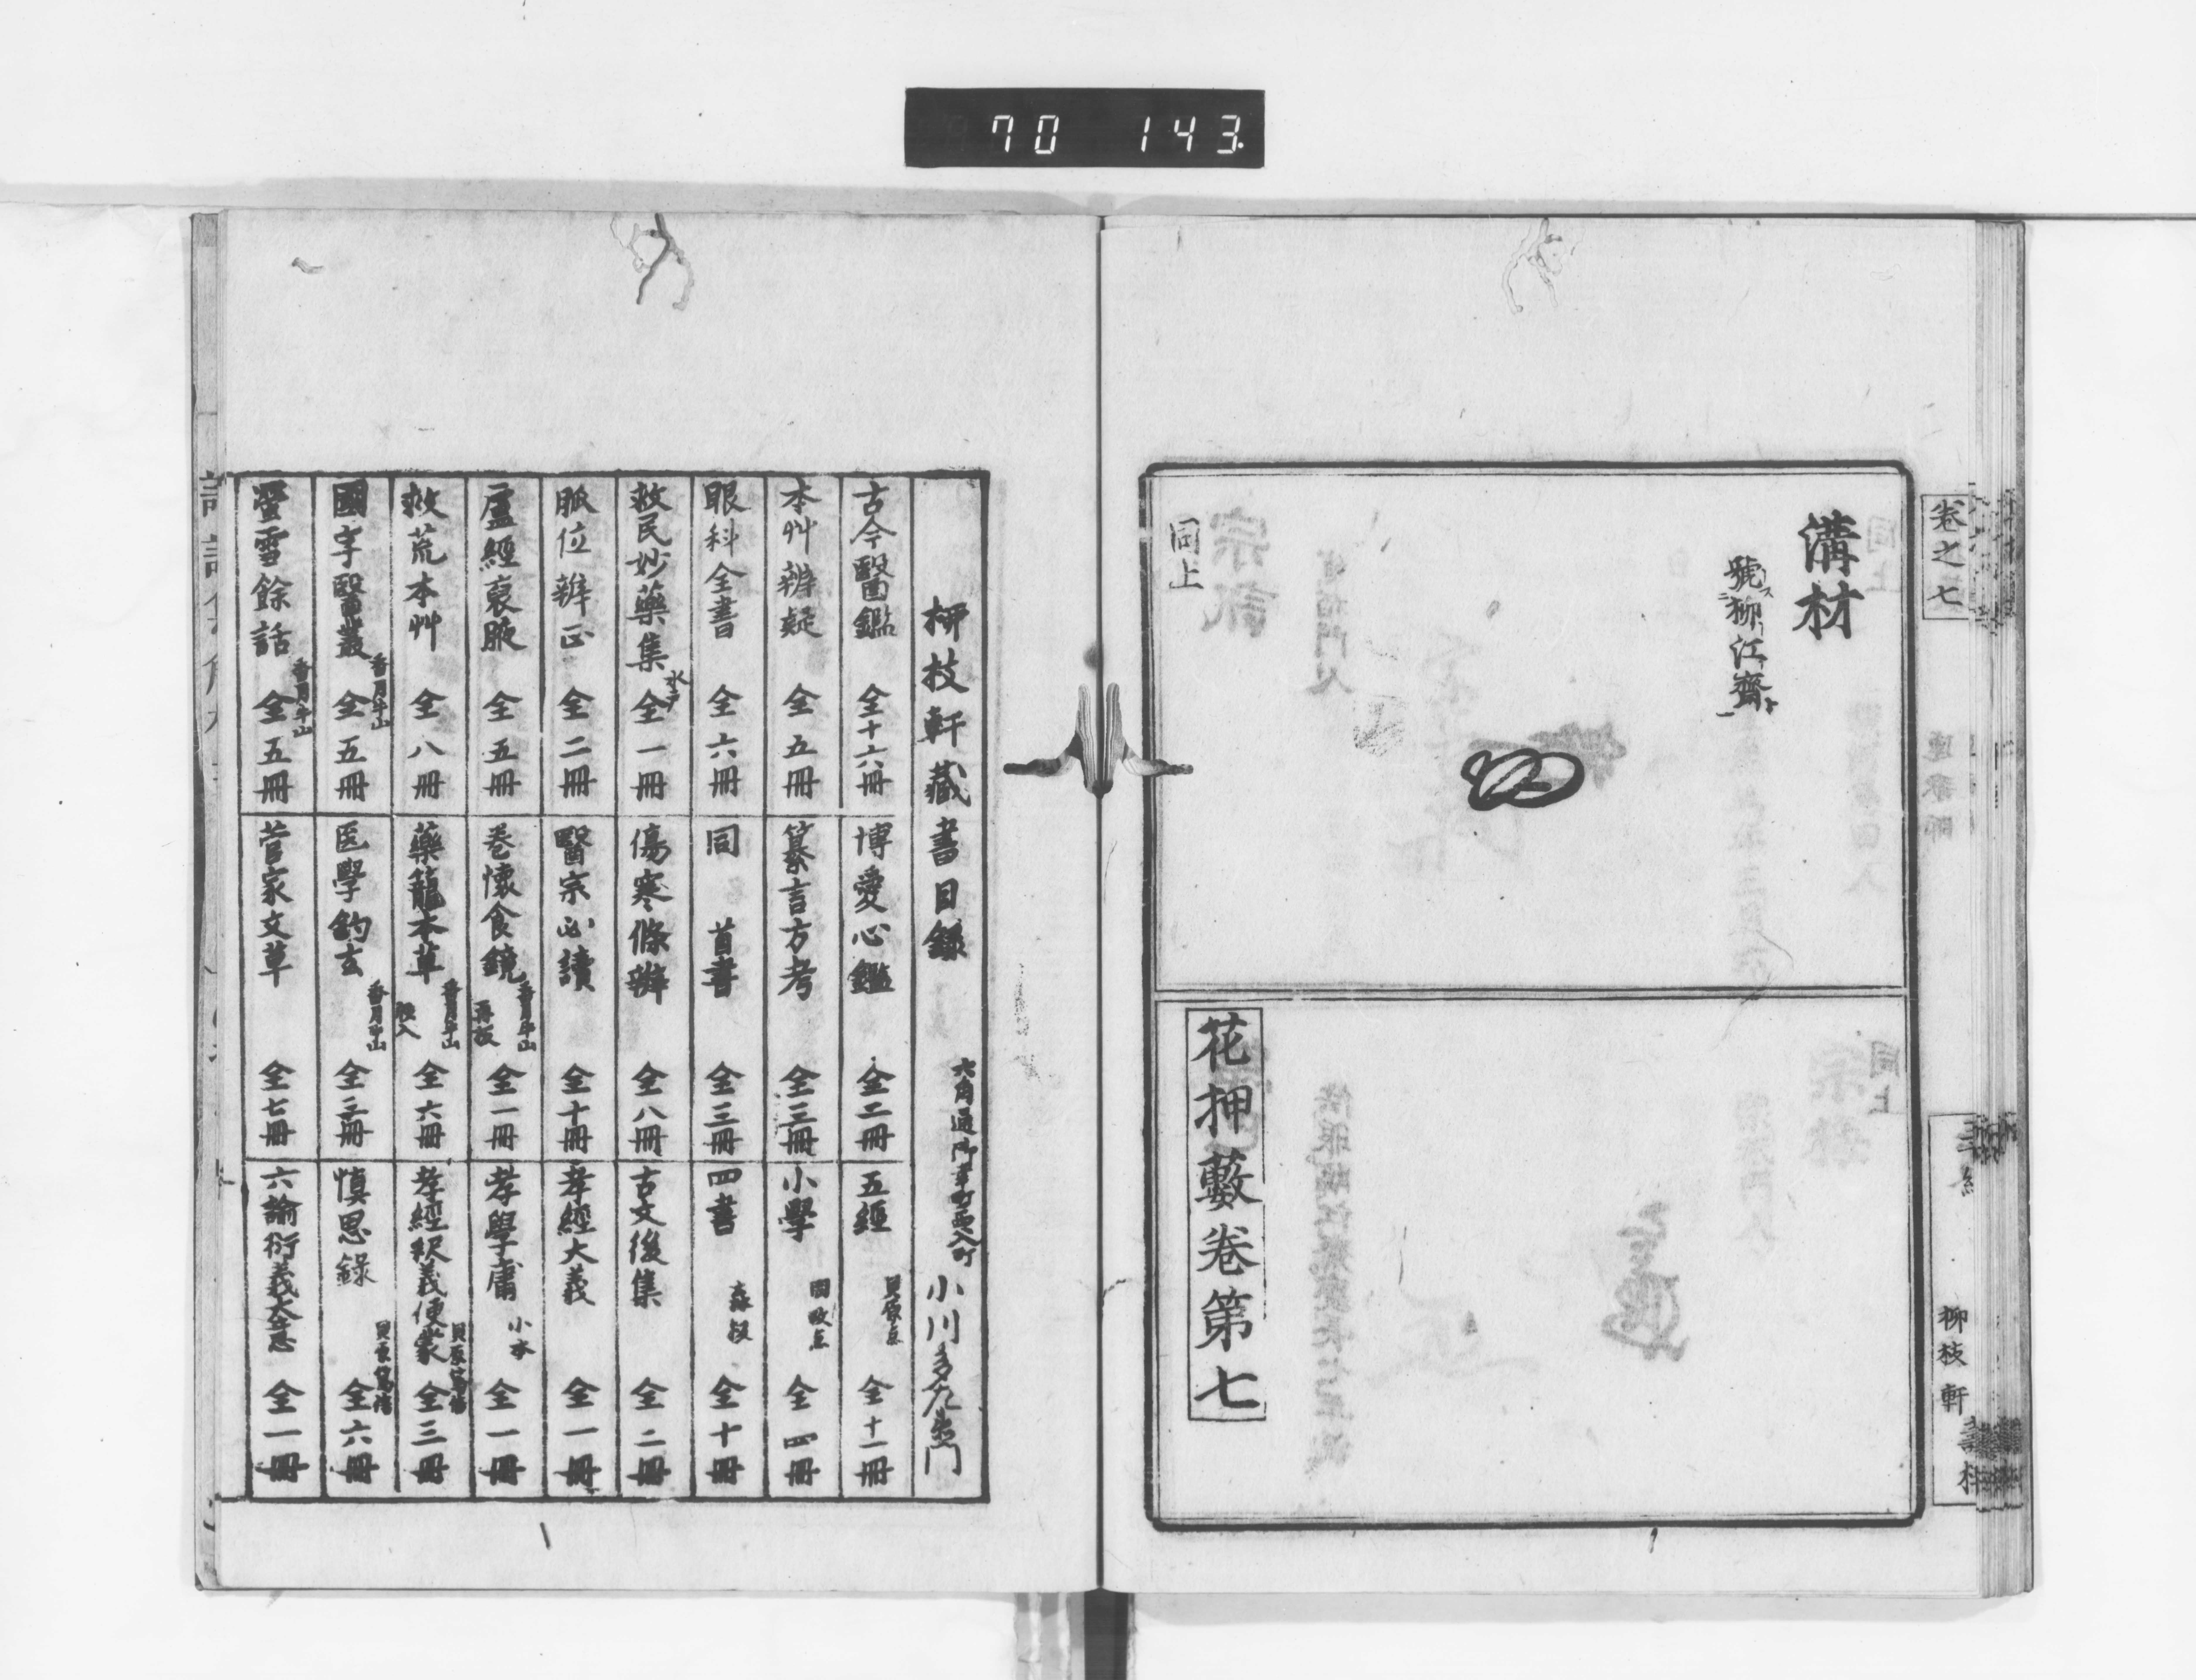 70 143
卷之七
柳枝軒
溝材
號柳江齋
同上
花押藪卷第七
柳枝軒藏書目錄 六角通御幸町西入町 小川多左衛門
古今醫鑑 全十六冊
博愛心鑑 全二冊
五經 貝原点 全十一冊
本艸辨疑 全五冊
纂言方考 全三冊
小學 全四冊
眼科全書 全六冊
同 首書 全三冊
四書 全十冊
救民妙藥集 水戸 全一冊
傷寒條辨 全八冊
古文後集 全二冊
脈位辨正 全二冊
醫宗必讀 全十冊
孝經大義 全一冊
盧經裒腋 全五冊
卷懷食鏡 香月牛山 再板 全一冊
孝學庸 小本 全一冊
救荒本艸 全八冊
藥籠本草 香月牛山 全六冊
孝經釈義便蒙 全三冊
國字醫叢 香月牛山 全五冊
医學鈎玄 香月牛山 全三冊
慎思錄 全六冊
螢雪餘話 香月牛山 全五冊
菅家文草 全七冊
六諭衍義大意 全一冊